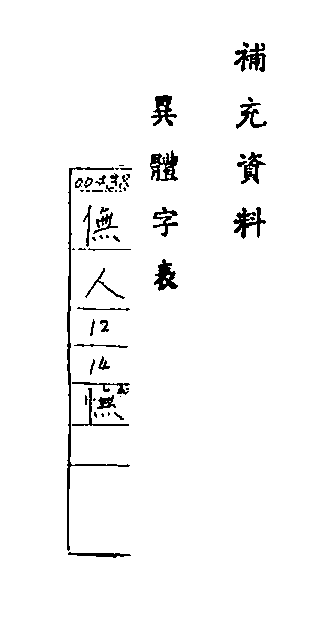 補充資料
異體字表
㒇
人
12
14
憮